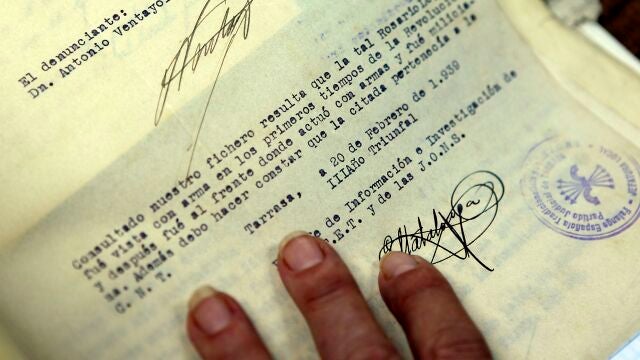 El denunciante:
Dn. Antonio Ventayol
Consultado nuestro fichero resulta que la tal Rosario
fué vista con arma en los primeros tiempos de la Revolución
y después fué al frente donde actuó con armas y fué milicia-
na. Además debo hacer constar que la citada pertenecía a la
C. N. T.
Tarrasa, a 20 de Febrero de 1.939
IIIAño Triunfal
de Información e Investigación de
F.E.T. y de las J.O.N.S.
Falange Española Tradicionalista
Partido Judicial de